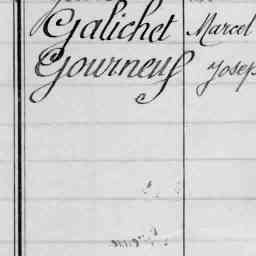 Galichet Marcel
Gourneuf Josep